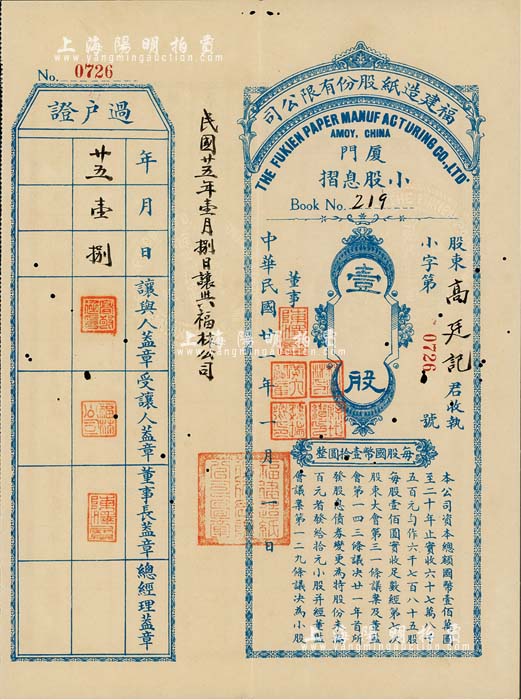 上海陽明拍賣
www.yangmingauction.com
No. 0726
福建造紙股份有限公司
THE FUKIEN PAPER MANUFACTURING CO., LTD
AMOY, CHINA
廈門
小股息摺
Book No. 219
股東高廷記君收執
小字第 0726 號
壹股
董事
中華民國廿 年一月 日
每股國幣壹拾圓整
本公司資本總額國幣壹佰萬圓
至二十年止實收六十七萬八千
五百元勻作六千七百八十五股
每股壹佰圓實收足數經第七次
股東大會第三一條議案及董監
會第一四三條議決廿一年首所
發股息債券變更為持股份未滿
百元者發給拾元小股并經董監
會議案第一二九條議決為小股
民國廿五年壹月捌日讓與福林公司
過戶證
年 廿五
月 壹
日 捌
讓與人蓋章
受讓人蓋章
董事長蓋章
總經理蓋章
上海陽明拍賣
www.yangmingauction.com